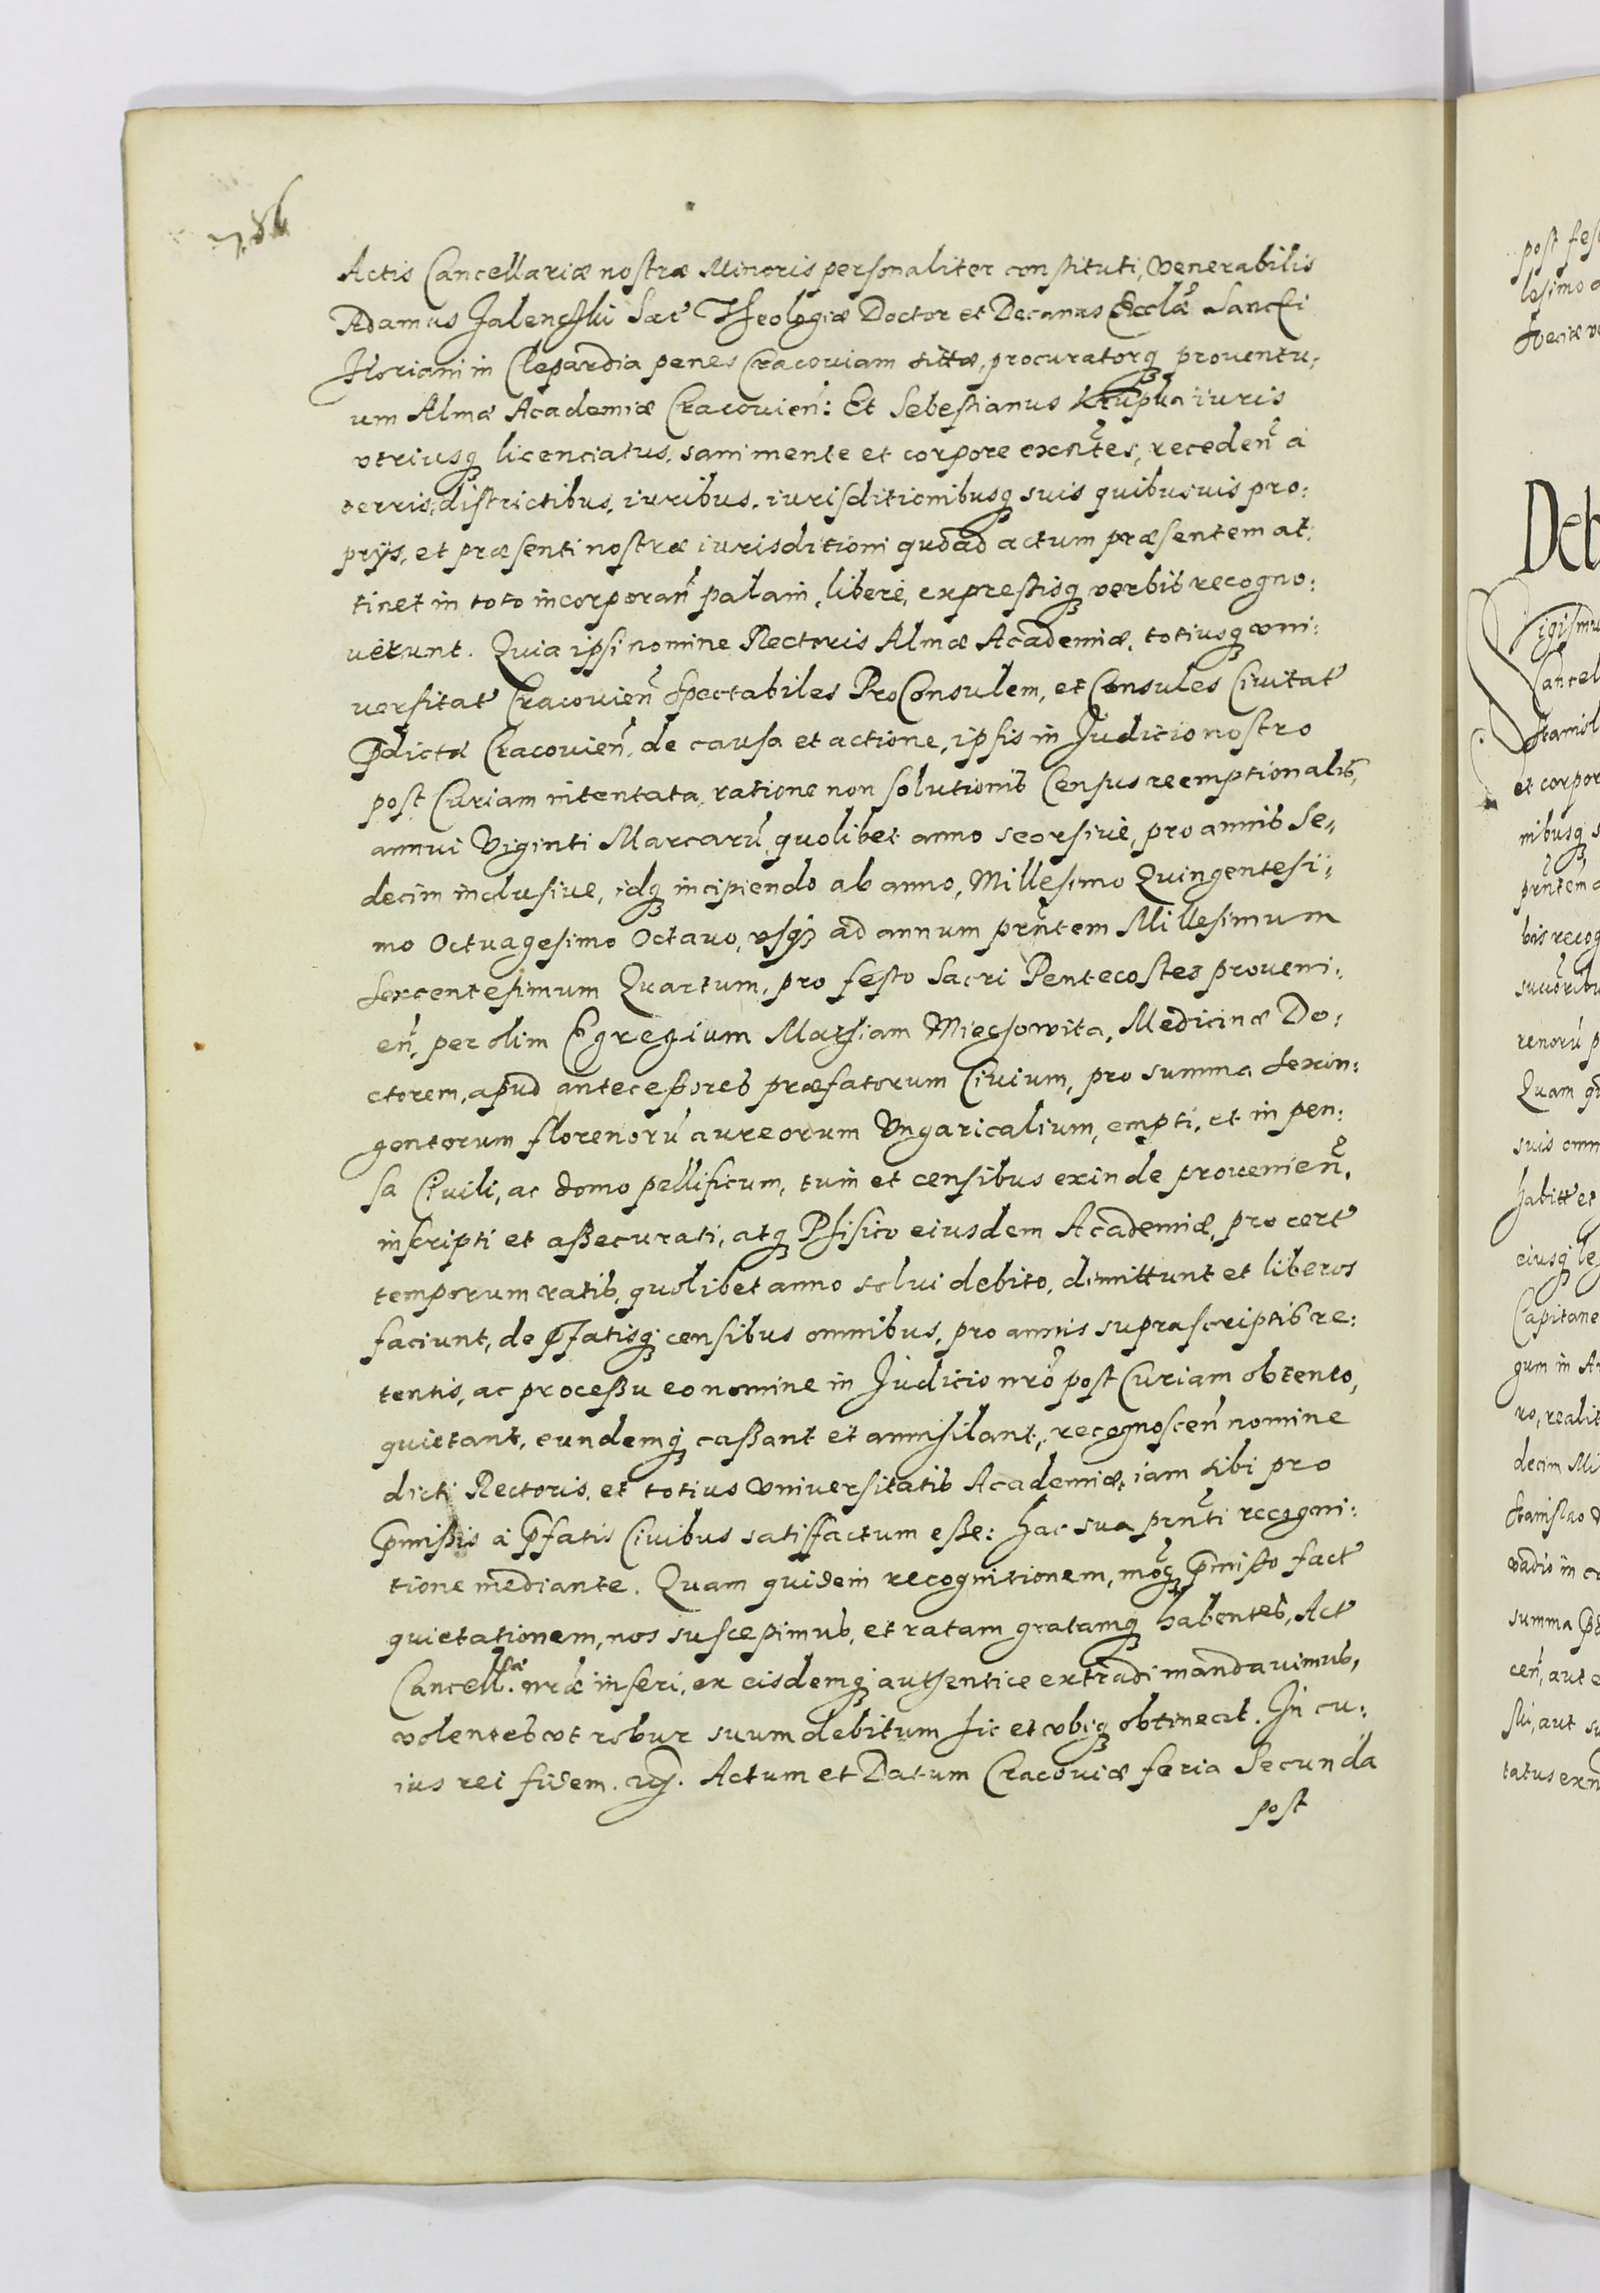 786
Actis Cancellariæ nostræ Minoris personaliter constituti, venerabilis
Adamus Jalenczki Sac Theologiæ Doctor et Decanus Ecclæ Sancti
Floriani in Clepardia penes Cracoviam sittæ, procuratorq proventu,
um Almæ Academiæ Cracovien: Et Sebestianus Krupka iuris
vtriusq licenciatus, sani mente et corpore exntes, receden a
terris, districtibus, iuribus, iurisditionibusq suis quibusuis pro:
prijs, et præsenti nostræ iurisditioni quoad actum præsentem at,
tinet in toto incorporan palam, libere, expressisq verbis recogno:
uerunt. Quia ipsi nomine Rectoris Almæ Academiæ, totiusq vni:
versitat Cracovien Spectabiles ProConsulem, et Consules Civitat
pdictæ Cracovien, de causa et actione, ipsis in Judicio nostro
post Curiam intentata, ratione non solutionis Census reemptionalis,
annui Viginti Marcaru, quolibet anno seorsive, pro annis Se,
decim inclusive, idq incipiendo ab anno, Millesimo Quingentesi,
mo Octuagesimo Octavo, vsq ad annum prntem Millesimum
Sexcentesimum Quartum, pro festo Sacri Pentecostes proveni,
en, per olim Egregium Mathiam Miechowita, Medicinæ Do:
ctorem, apud antecessores præfatorum Civium, pro summa Sexin:
gentorum florenoru aureorum Vngaricalium, empti, et in pen:
sa Civili, ac domo pellificum, tum et censibus exinde provenien,
inscripti et assecurati, atq Phisico eiusdem Academiæ, pro cert
temporum ratis, quolibet anno solui debito, dimittunt et liberos
faciunt, de pfatisq censibus omnibus, pro annis suprascriptis re:
tentis, ac processu eo nomine in Judicio nro post Curiam obtento,
quietant, eundemq cassant et annihilant, recognoscen nomine
dicti Rectoris, et totius Vniversitatis Academiæ, iam sibi pro
pmissis a pfatis Civibus satisfactum esse: hac sua prnti recogni:
tione mediante. Quam quidem recognitionem, moq pmisso fact
quietationem, nos suscepimus, et ratam gratamq habentes, Act
Cancell. nræ inseri, ex eisdemq authentice extradi mandavimus,
volentes vt robur suum debitum hic et vbiq obtineat. In cu:
ius rei fidem. Actum et Datum Cracoviæ feria Secunda
post